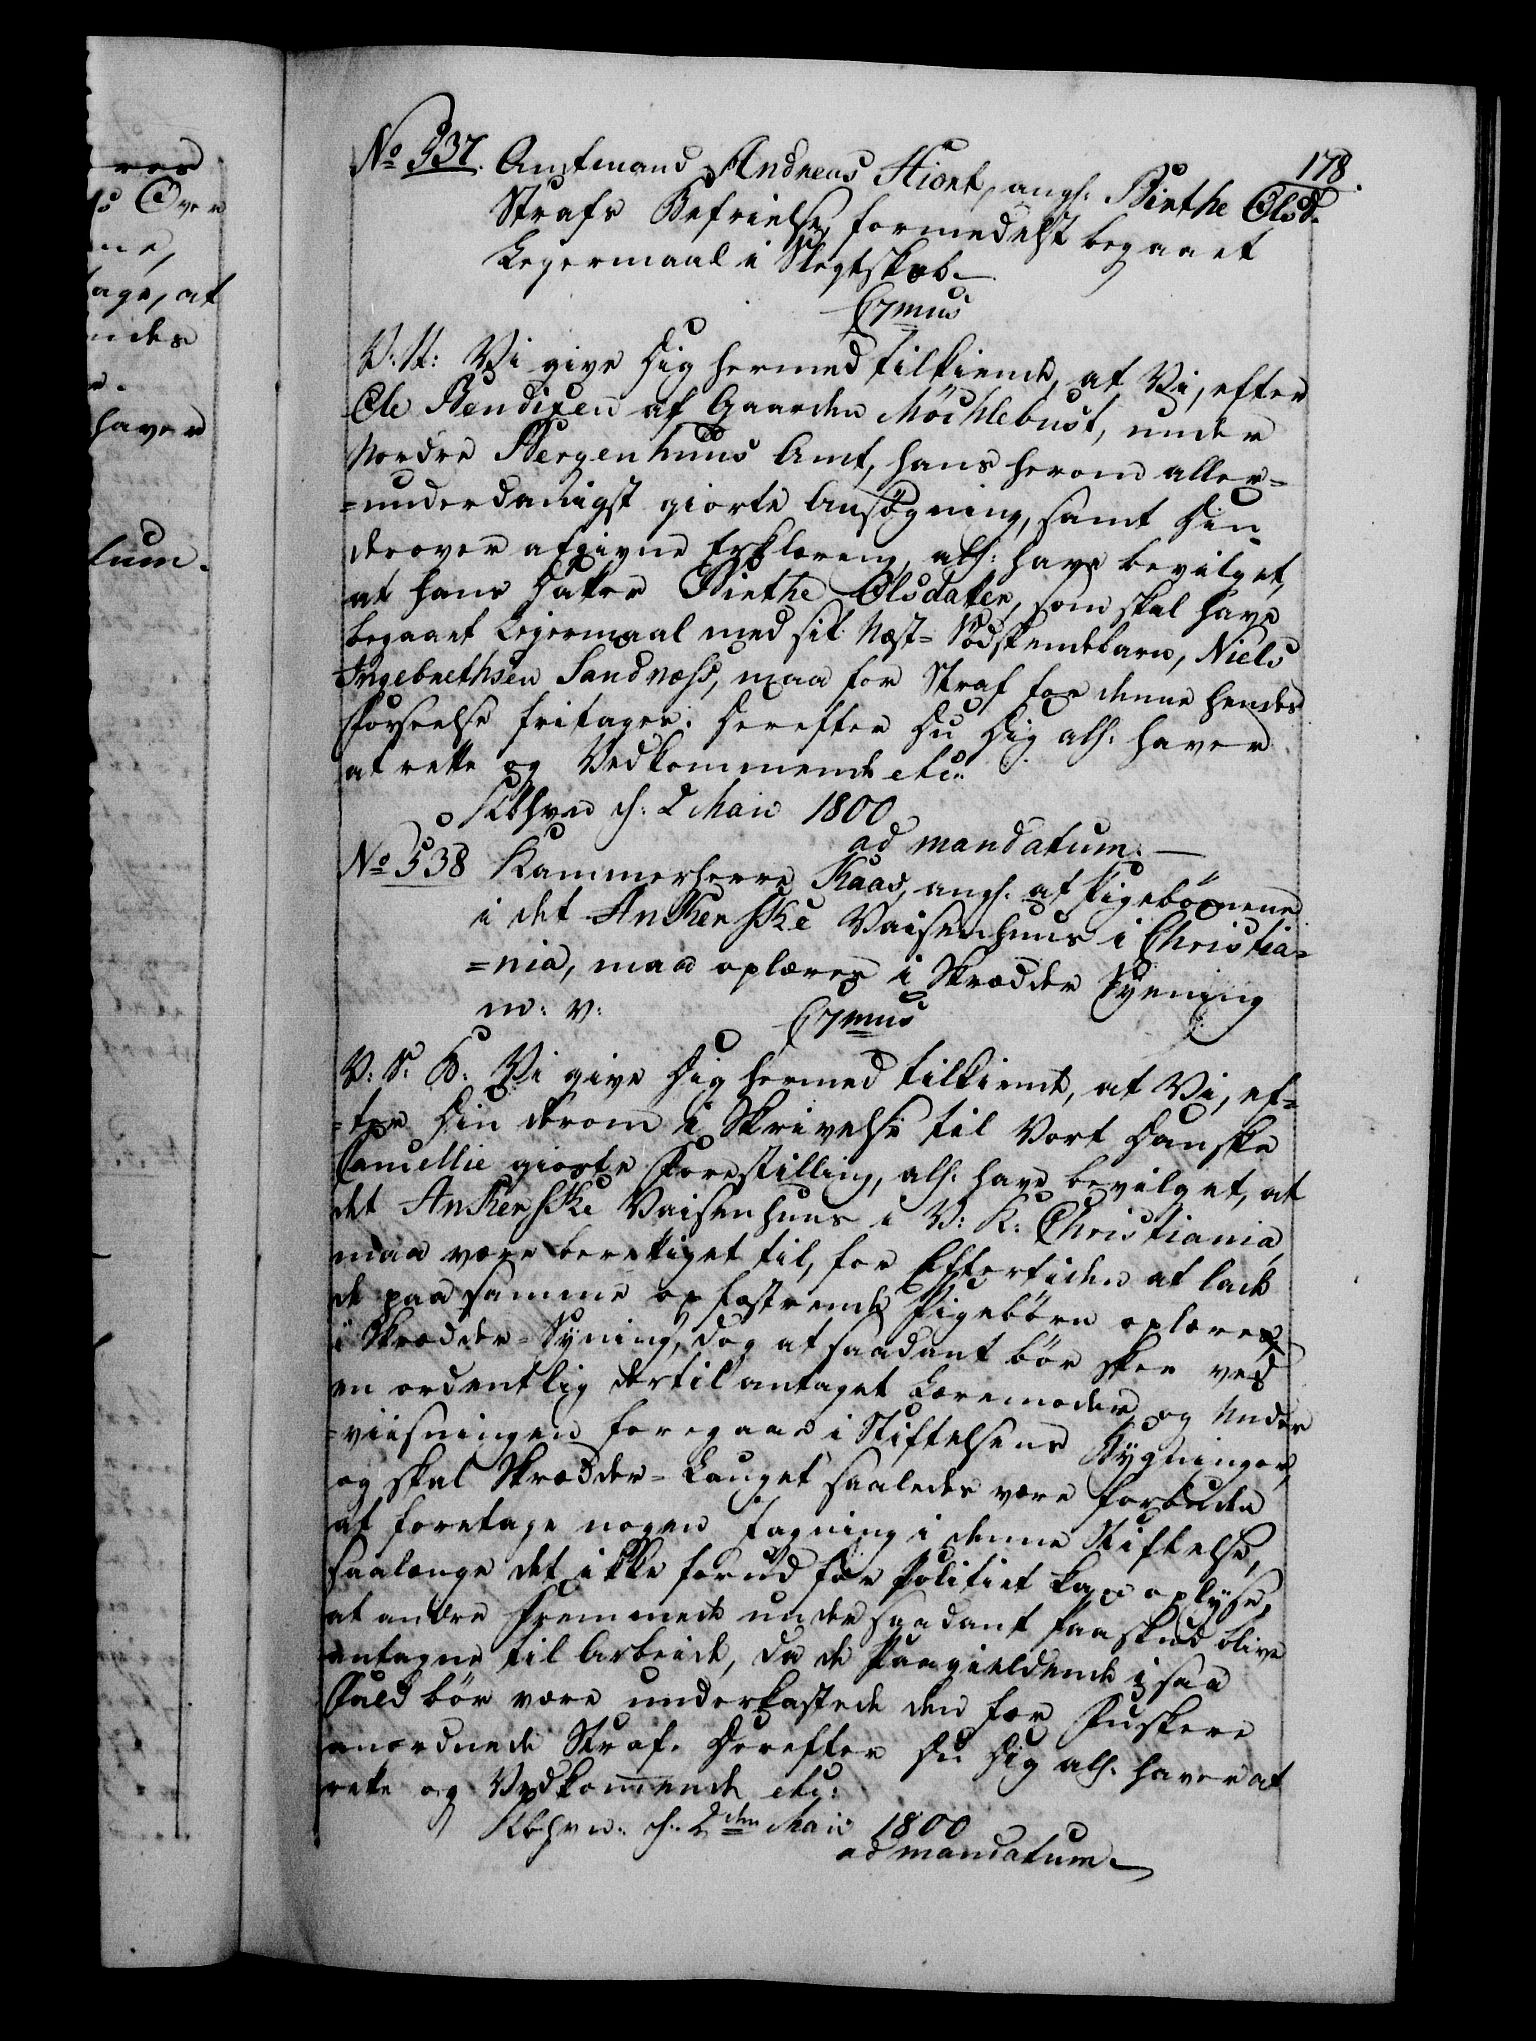 178.
No 537. Amtmand Andreas Hiort, angl. Birthe Olsd.
Strafs Befrielse, formedelst begaaet
Leiermaal i Slegtskab.
C7mus
V: V: Vi give Dig hermed tilkiende, at Vi, efter
Ole Bendixen af Gaarden Möchlebust, under
Nordre Bergenhuus Amt, hans herom aller=
=underdanigst giorte Ansøgning, samt Din
derover afgivne Erklæring, all: have bevilget,
at hans Datter Birthe Olsdatter, som skal have
begaaet Leiermaal med sit Næst-Södskendebarn, Niels
Ingebrethsen Sandnæss, maa for Straf for denne hendes
Forseelse fritages. Derefter Du Dig all: haver
at rette og Vedkommende etc:
Kbhvn d: 2 Maii 1800
ad mandatum.
No 538 Kammerherre Kaas, angl. at Pigebörnene
i det Ankerske Vaisenhuus i Christia=
=nia, maa oplæres i Skrædder Syening
m: v:
C7mus
V: S. B: Vi give Dig hermed tilkiende, at Vi, ef=
=ter Din derom i Skrivelse til Vort Danske
Cancellie giorte Forestilling, all: have bevilget, at
det Ankerske Vaisenhuus i V: K: Christiania,
maa være berettiget til, for Eftertiden at lade
de paa samme opfostrende Pigebörn oplæres
i Skrædder-Syning, dog at saadant bör skee ved
en ordentlig dertil antaget Læremoder og Under
=viisningen foregaae i Stiftelsens Bygninger,
og skal Skrædder-Lauget saaledes være forbuden
at foretage nogen Jagning i denne Stiftelse,
saalænge det ikke forud for Politiet kan oplyse,
at andre Fremmede under saadant Paaskud blive
antagne til Arbeide, da de Paagieldende i saa
Fald bör være underkastede den for Fuskere
anordnede Straf. Derefter Du Dig all: haver at
rette og Vedkommende etc:
Kbhvn: d: 2den Maii 1800
ad mandatum.